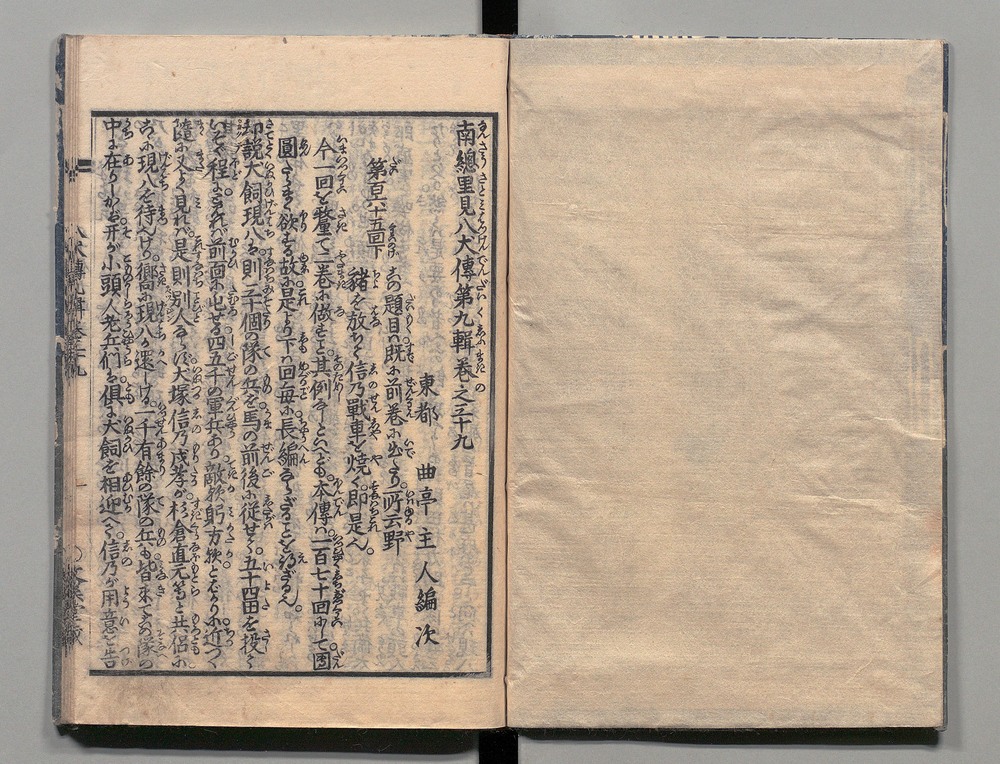 南總里見八犬傳第九輯卷之三十九
東都 曲亭主人編次
第百六十五回下 この題目ハ既に前巻に出たり。所云野
猪を放ちて信乃戰車を燒く。即是也。
今一回を釐て二巻に做すこと其例なしといへども。本傳ハ一百七十回にして團
圓さまく欲する故に是より下ハ回毎に長編ならざることを得ざるなん。
却説犬飼現八ハ則三十個の隊の兵を馬の前後に從せて。五十四田を投て
いそぐ程に。前面に屯せる四五千の軍兵あり。敵欤躬方欤とばかりに近づく
隨に又よく見れバ是則別人ならず。犬塚信乃戍孝が杉倉直元等と共侶に
こゝに現八を待てけり。嚮に現八が還しける。一千有餘の隊の兵も皆來てこの隊の
中に在りしかバ。开が小頭人老兵們ハ倶に犬飼を相迎へて。信乃が用意を告